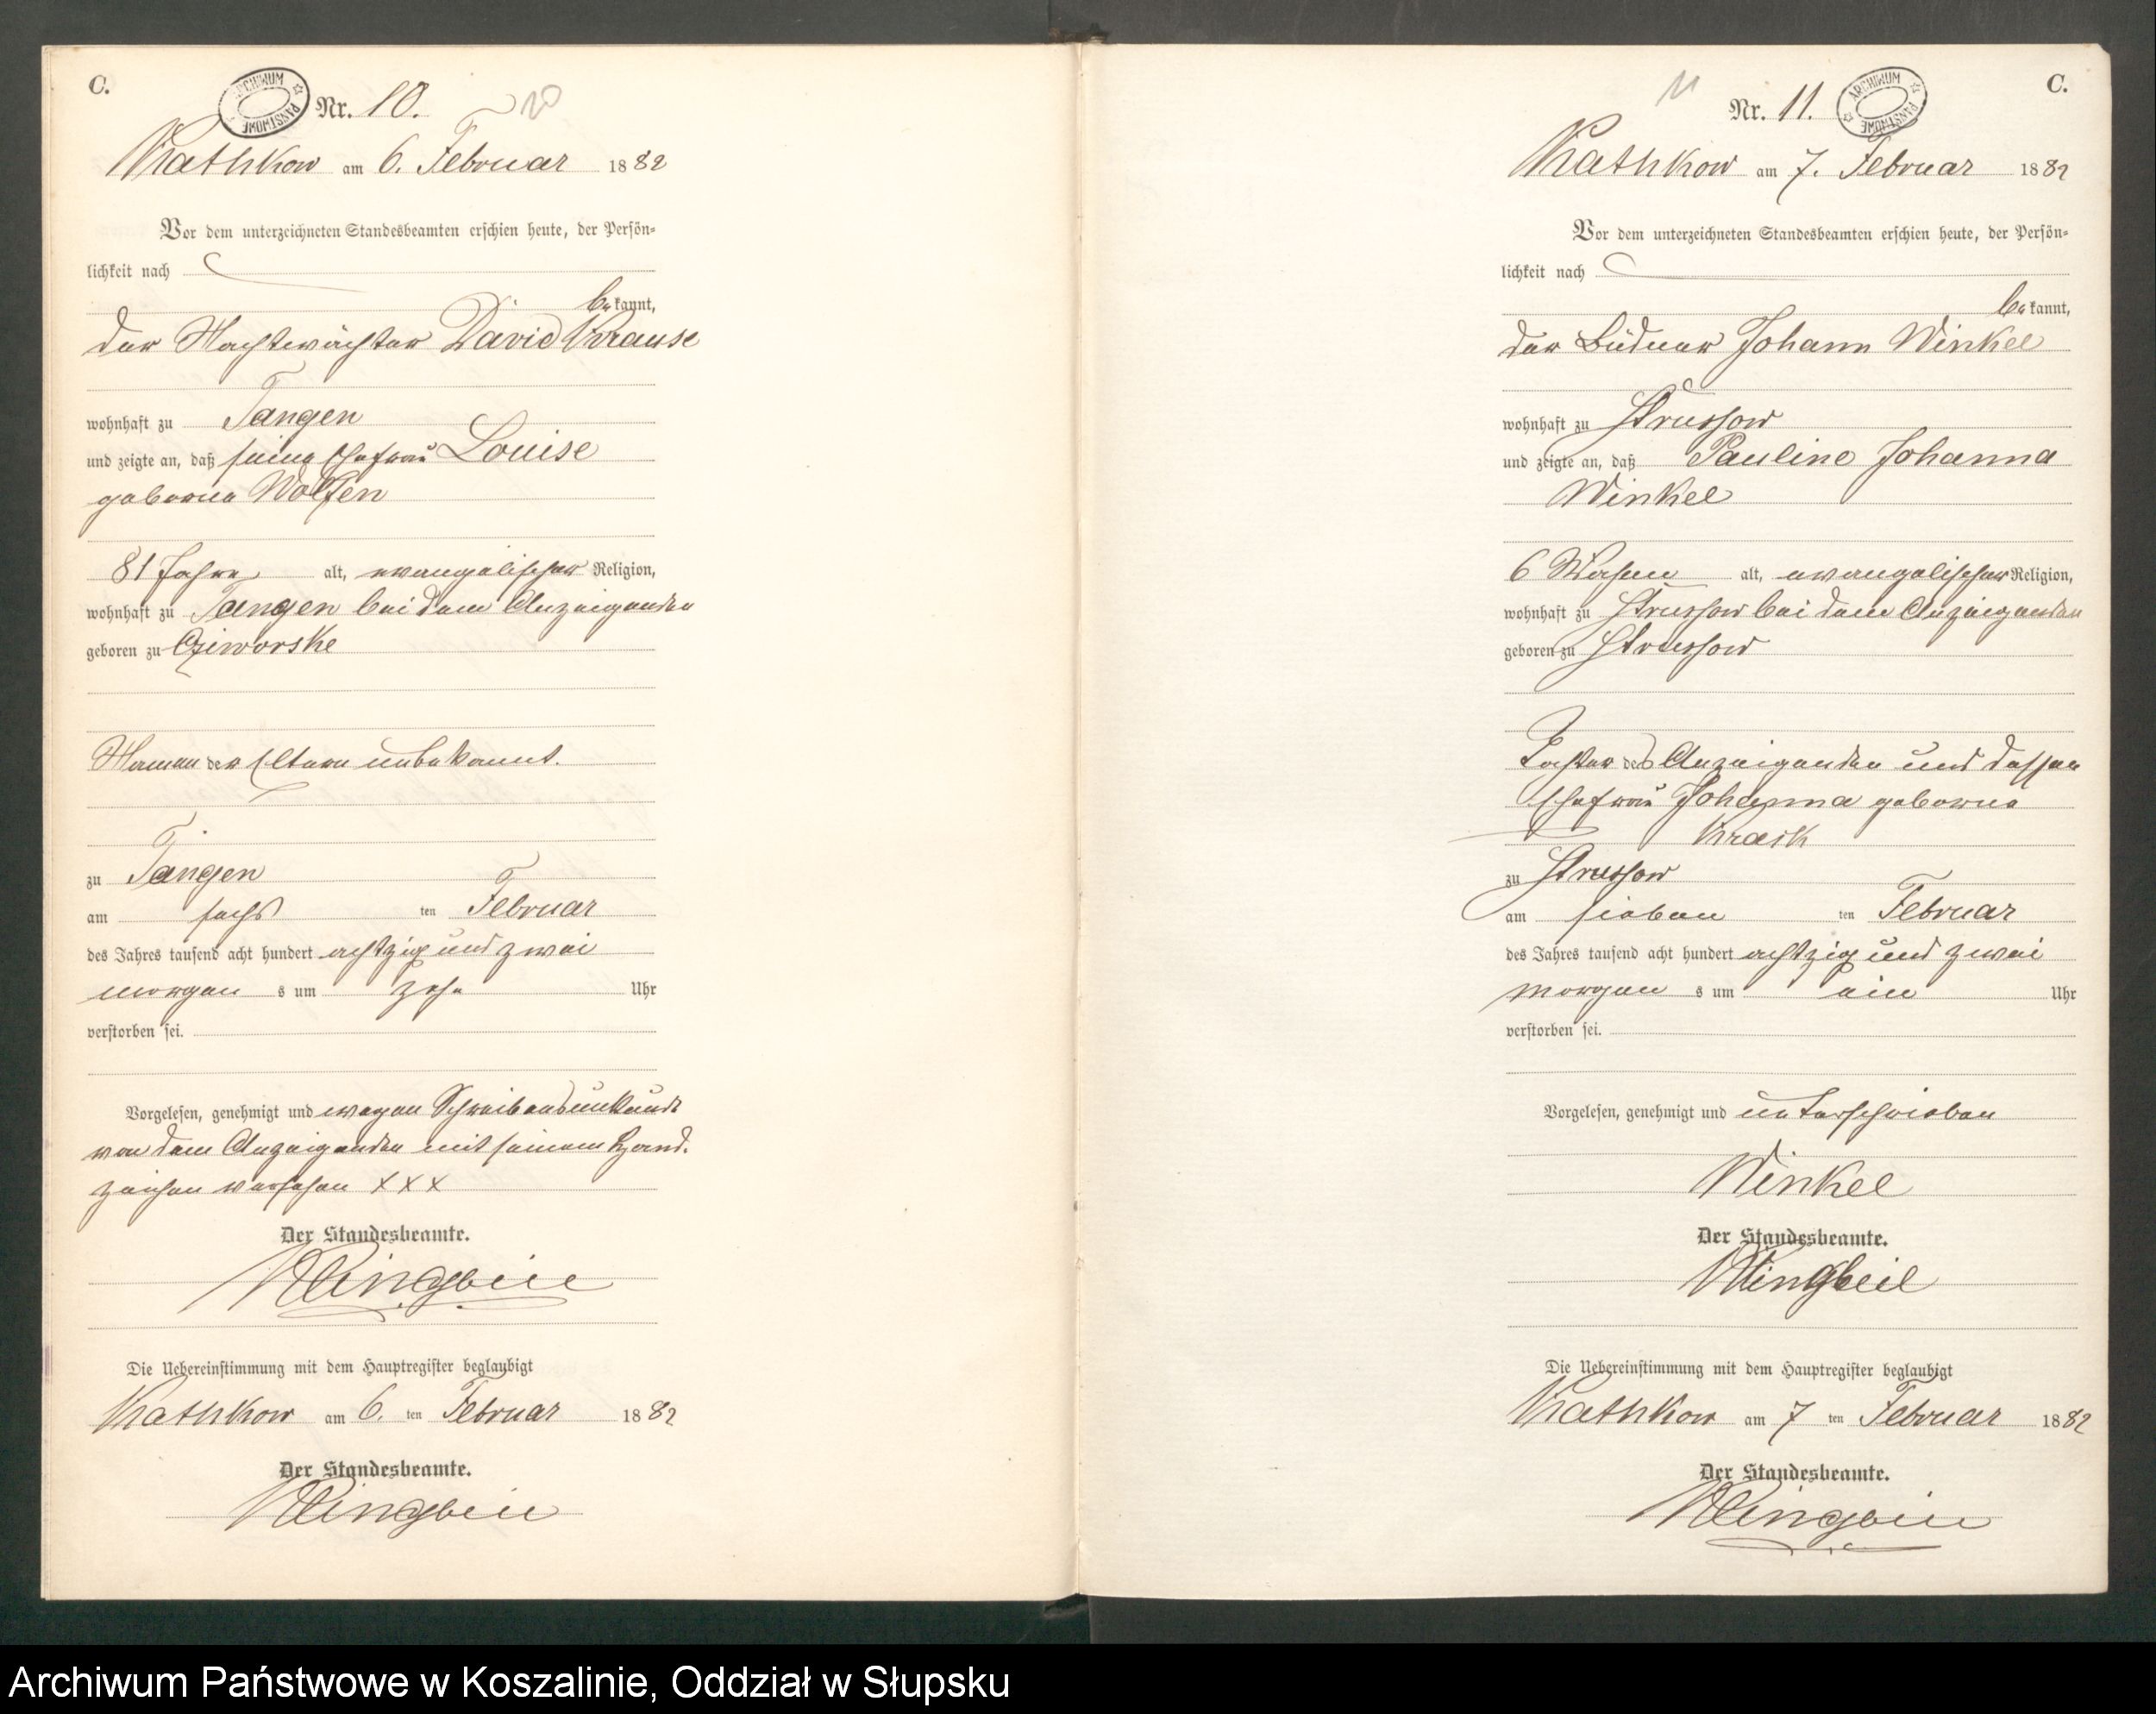 C.
ARCHIWUM PAŃSTWOWE
Nr. 10.
Kathkow am 6. Februar 1882
Vor dem unterzeichneten Standesbeamten erschien heute, der Persön-
lichkeit nach
bekannt,
der Nachtwächter David Krause
wohnhaft zu Tangen
und zeigte an, daß seine Ehefrau Louise
geborne Wolfen
81 Jahre alt, evangelischer Religion,
wohnhaft zu Tangen bei dem Anzeigenden
geboren zu
Namen der Eltern unbekannt.
zu Tangen
am sechs ten Februar
des Jahres tausend acht hundert achtzig und zwei
morgens um zehn Uhr
verstorben sei.
Vorgelesen, genehmigt und wegen Schreibensunkunde
von dem Anzeigenden mit seinem Hand-
zeichen versehen XXX
Der Standesbeamte.
Klingbeil
Die Uebereinstimmung mit dem Hauptregister beglaubigt
Kathkow am 6. ten Februar 1882
Der Standesbeamte.
Klingbeil
C.
ARCHIWUM PAŃSTWOWE
11
Nr. 11.
Kathkow am 7. Februar 1882
Vor dem unterzeichneten Standesbeamten erschien heute, der Persön-
lichkeit nach
bekannt,
der Büdner Johann Winkel
wohnhaft zu Strussow
und zeigte an, daß Pauline Johanna
Winkel
6 Wochen alt, evangelischer Religion,
wohnhaft zu Strussow bei dem Anzeigenden
geboren zu Strussow
Tochter des Anzeigenden und dessen
Ehefrau Johanna geborne
Krask
zu Strussow
am sieben ten Februar
des Jahres tausend acht hundert achtzig und zwei
morgens um ein Uhr
verstorben sei.
Vorgelesen, genehmigt und unterschrieben
Winkel
Der Standesbeamte.
Klingbeil
Die Uebereinstimmung mit dem Hauptregister beglaubigt
Kathkow am 7 ten Februar 1882
Der Standesbeamte.
Klingbeil
Archiwum Państwowe w Koszalinie, Oddział w Słupsku